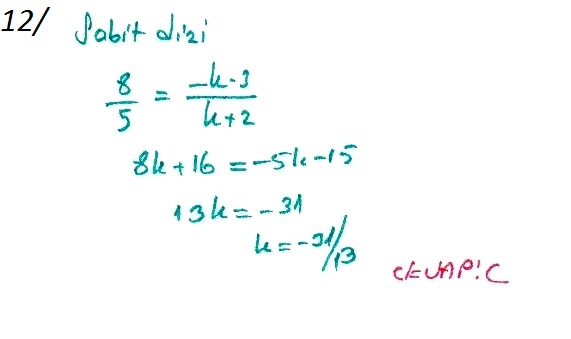 12/ Sabit dizi
8/5 = -k-3/k+2
8k+16 = -5k-15
13k = -31
k = -31/13
CEVAP: C